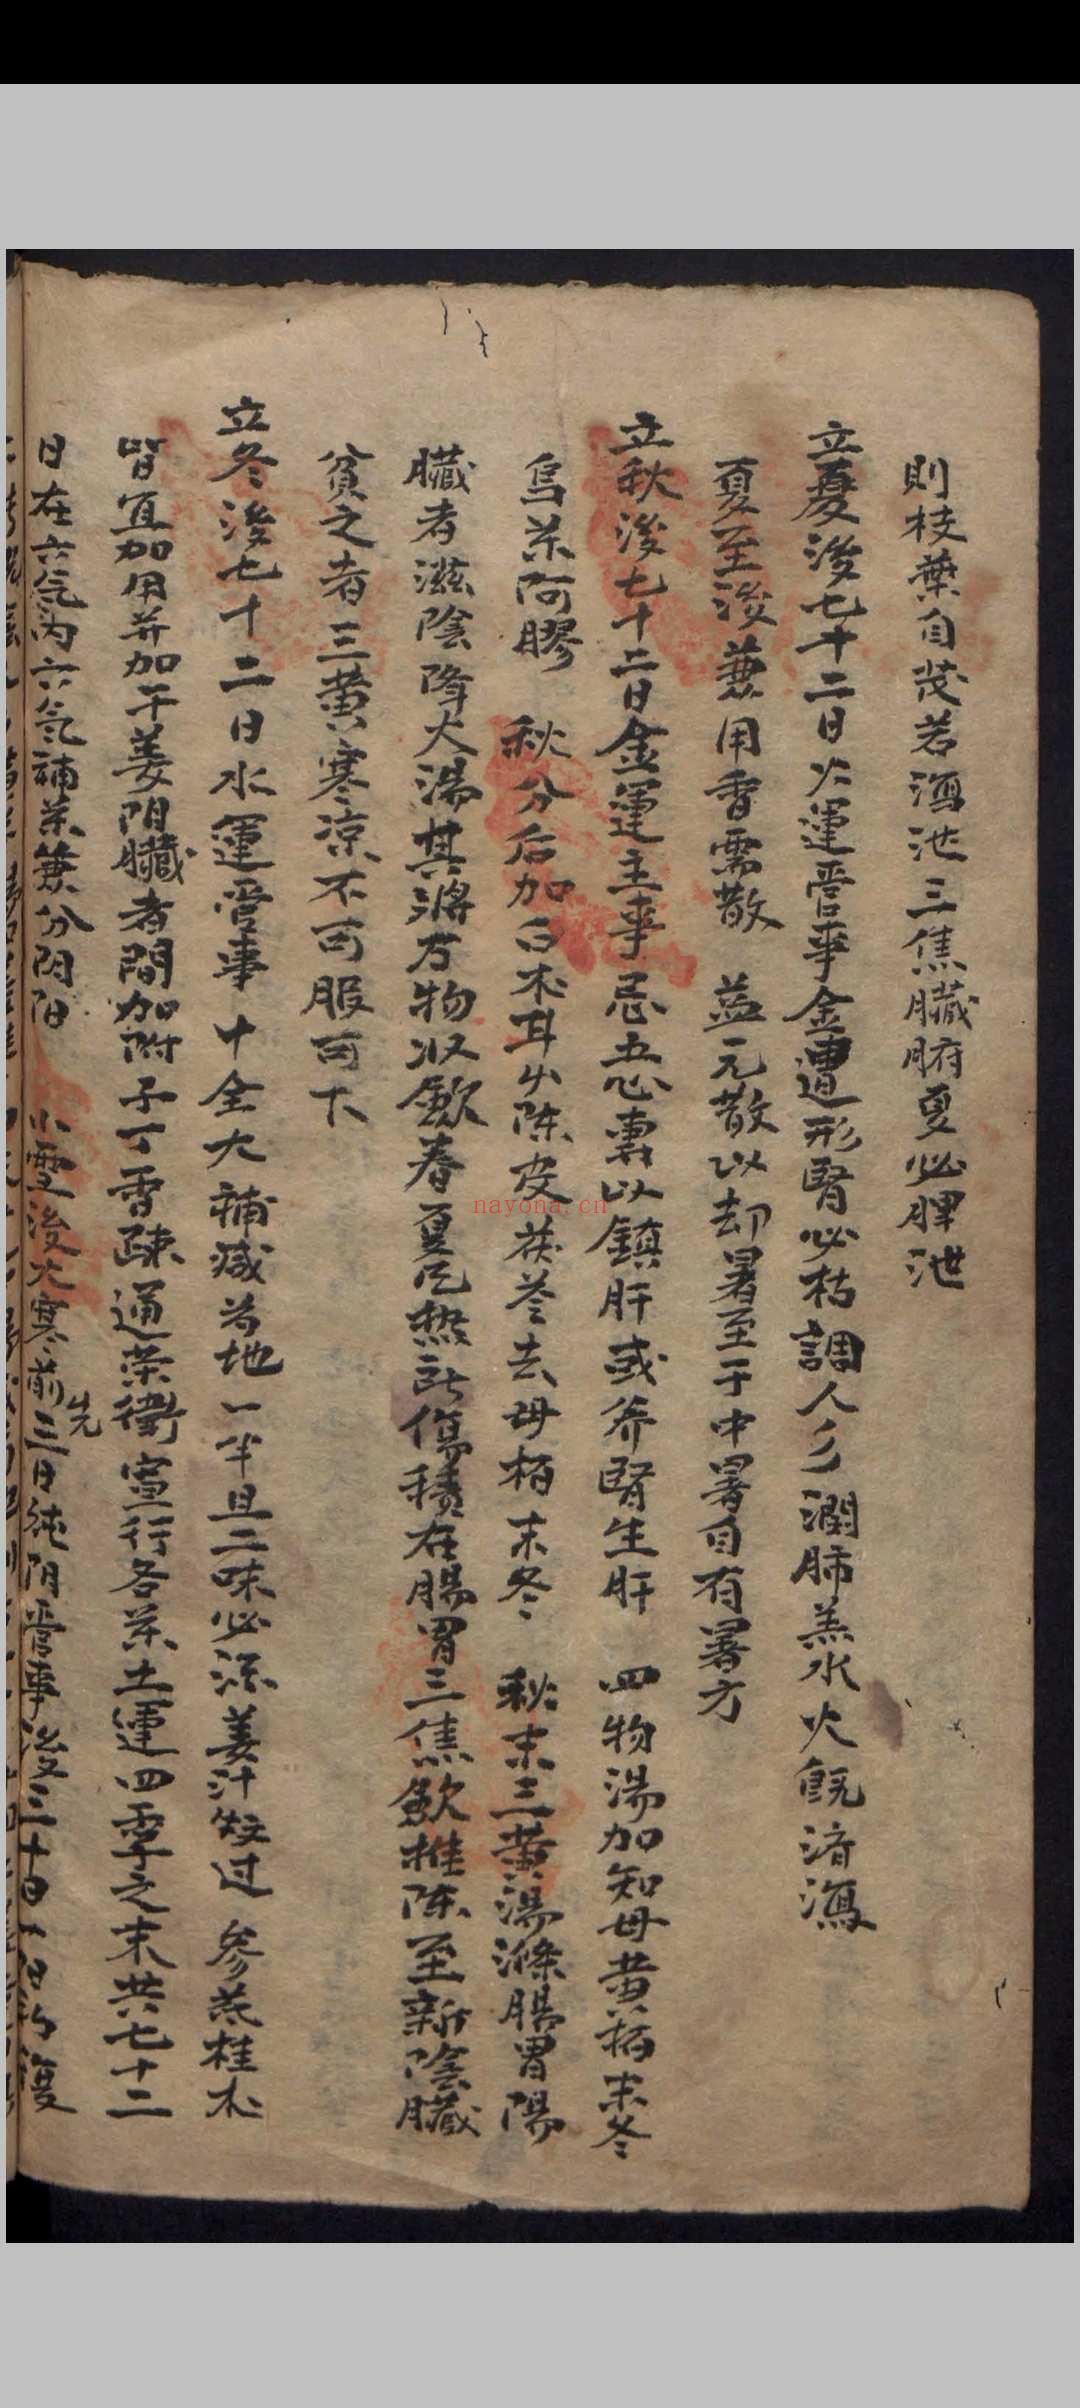 則枝葉自茂若酒池三焦臟腑夏必脾泄
立夏後七十二日火運管事金遭形腎必枯調人參潤肺羔水火既済瀉
夏至後兼用香需散 益元散以却暑至于中暑自有暑方
立秋後七十二日金運主事忌恶専以鎮肝或养腎生肝 四物湯加知母黄栢末冬
烏茶阿膠 秋分后加白术耳少陈皮茯苓去母栢末冬 秋末三黄湯滌腸胃陽
臟者滋陰降火湯其將万物収斂春夏尼热所傷積在腸胃三焦斂推陈至新陰臟
貧之者三黄寒凉不可服可下
立冬後七十二日水運管事 十全大補减芍地一半且二味必添姜汁炒过 參芪桂术
皆宜加用并加干姜阴臟者間加附子丁香疎通荣衛宣行各茶土運四季之末共七十二
日在六氣内六氣補茶兼分阴阳 小雪後大寒前先三日純阴管事後三十日一阳初復
nayona.cn